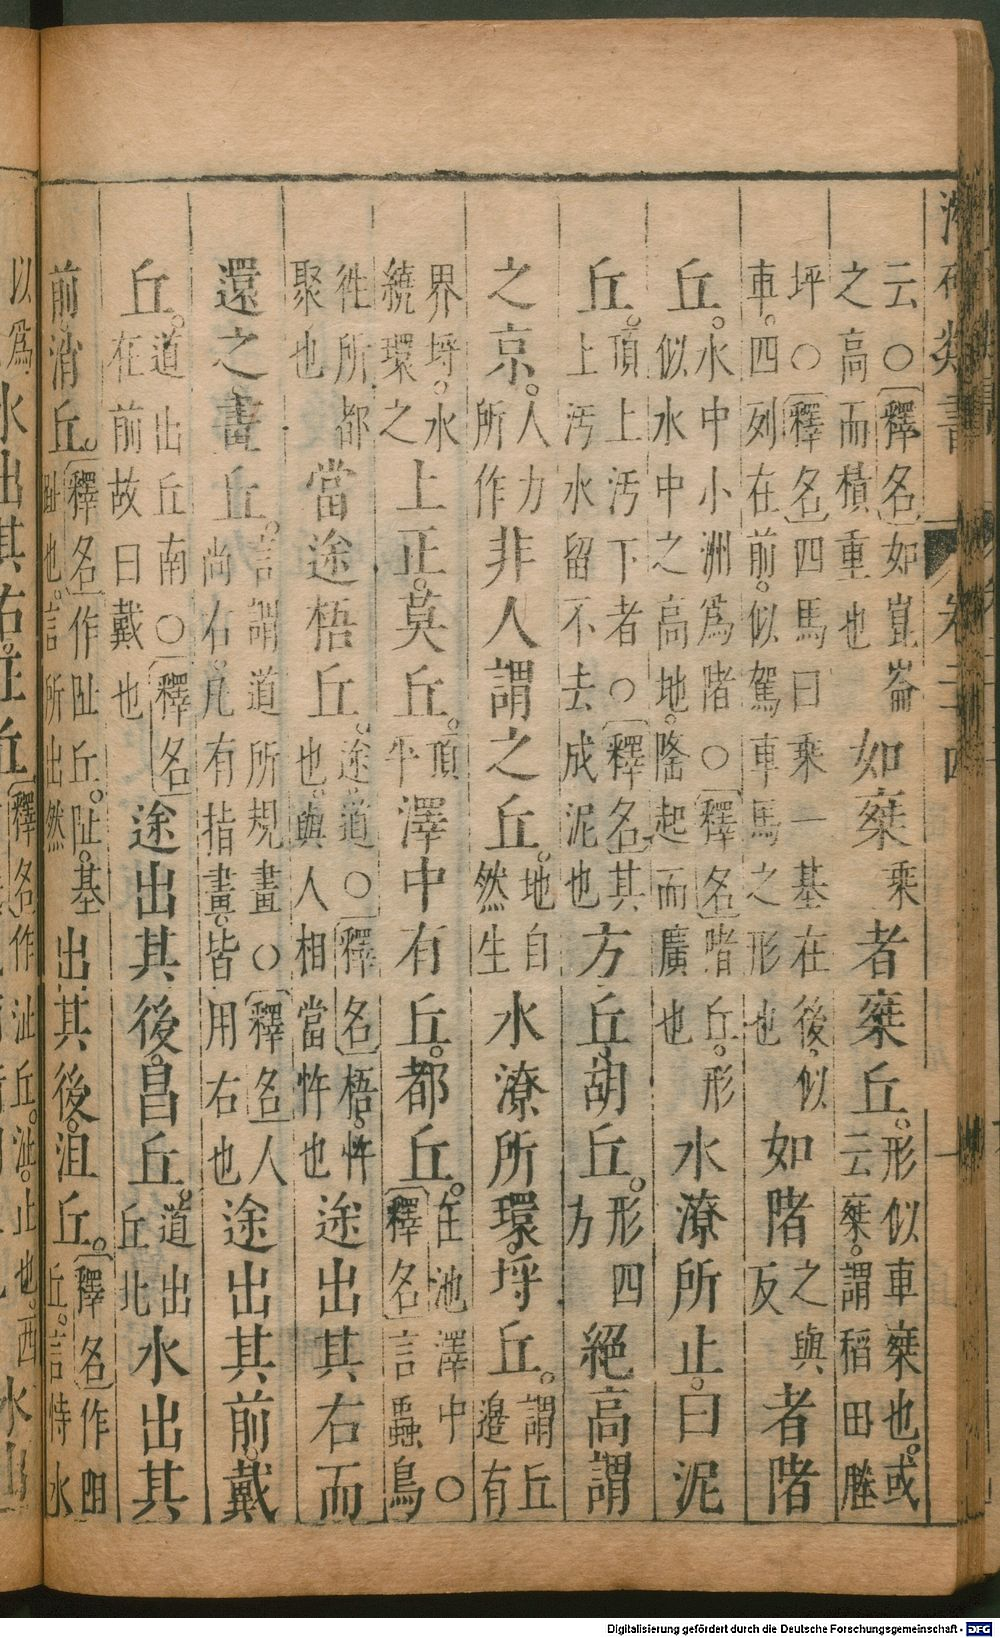 云○釋名如崑崙之高而積重也如椉乘者椉丘形似車椉也或云椉謂稻田塍
坪○釋名四馬曰乘一基在後似車四列在前似駕車馬之形也如陼之與反者陼
丘水中小洲為陼○釋名陼丘形似水中之高地隆起而廣也水潦所止曰泥
丘頂上汚下者○釋名其上汚水留不去成泥也方丘胡丘形四方絕高謂
之京人力所作非人謂之丘地自然生水潦所環埒丘謂丘邉有
界埒水繞環之上正莫丘頂平澤中有丘都丘在池澤中○釋名言蟲鳥
徃所都聚也當途梧丘途道也○釋名梧忤也與人相當忤也途出其右而
還之畫丘言謂道所規畫○釋名人尚右凡有指畫皆用右也途出其前戴
丘道出丘南○釋名在前故曰戴也途出其後昌丘道出丘北水出其
前消丘釋名作阯丘阯基趾也言所出然出其後沮丘釋名作阻丘言恃水
以爲水出其右正丘釋名作沚丘沚止也西水出
Digitalisierung gefördert durch die Deutsche Forschungsgemeinschaft - DFG